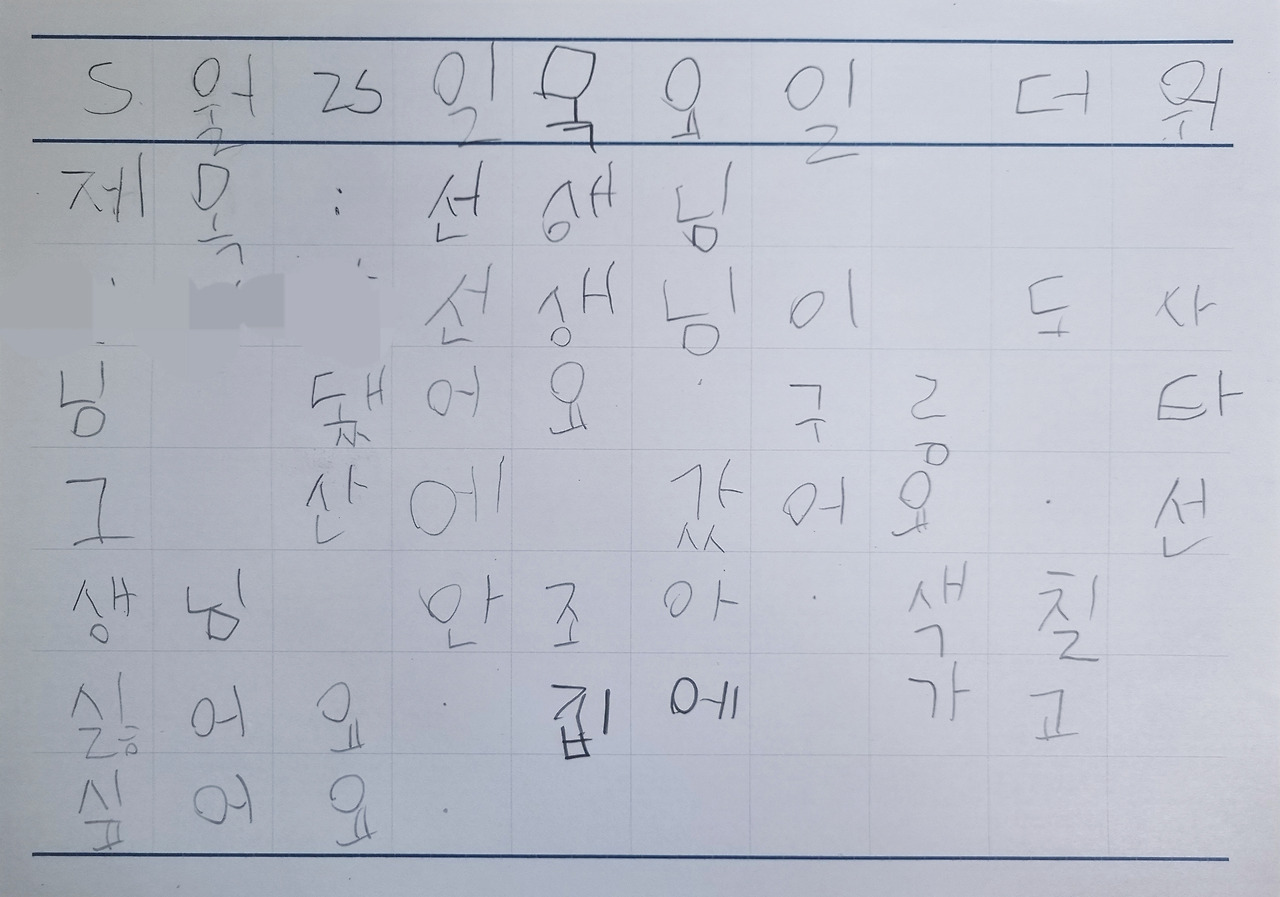 5월 25일 목요일 더워
제목 : 선생님
선생님이 도사
님 됐어요. 구름 타
고 산에 갔어요. 선
생님 안 조아. 색칠
싫어요. 집에 가고
싶어요.